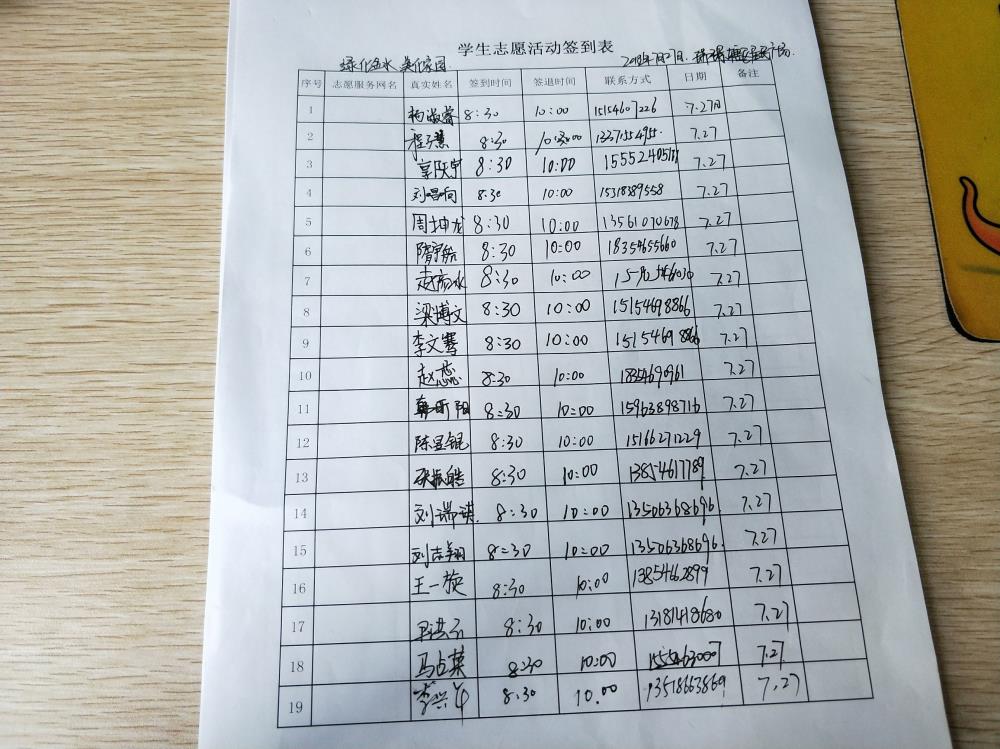 学生志愿活动签到表
绿化金水 美化家园 2018年7月27日
序号 志愿服务网名 真实姓名 签到时间 签退时间 联系方式 日期 备注
1 8:30 10:00 15154607226 7.27日
2 程子慧 8:30 10:00 7.27
3 8:30 10:00 7.27
4 8:30 10:00 15318389558 7.27
5 周坤龙 8:30 10:00 13561070678 7.27
6 隋宇航 8:30 10:00 18354655660 7.27
7 8:30 10:00 7.27
8 梁博文 8:30 10:00 15154698866 7.27
9 李文骞 8:30 10:00 15154698866 7.27
10 赵蕊 8:30 10:00 18354690961 7.27
11 韩昕阳 8:30 10:00 15963898716 7.27
12 陈昱锟 8:30 10:00 15166271229 7.27
13 8:30 10:00 13854617789 7.27
14 刘瑞琪 8:30 10:00 13506368696 7.27
15 刘吉翔 8:30 10:00 13506368696 7.27
16 王一旋 8:30 10:00 13854662899 7.27
17 8:30 10:00 13181418680 7.27
18 马占英 8:30 10:00 15554630007 7.27
19 李兴华 8:30 10.00 13518663869 7.27